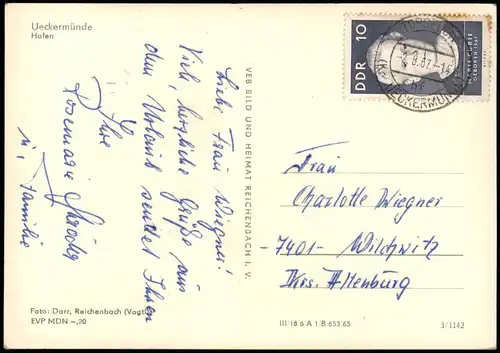 Ueckermünde
Hafen
Liebe Frau Wiegner!
Viele, herzliche Grüße aus
dem Urlaub sendet Ihnen
Ihre
Rosemarie
u. Familie
Foto: Darr, Reichenbach (Vogtl.)
EVP MDN –,20
VEB BILD UND HEIMAT REICHENBACH I. V.
DDR 10
UECKERMÜN
Frau
Charlotte Wiegner
7401 Wilchwitz
Krs. Altenburg
III/18 6 A 1/B 653/65
3/1142